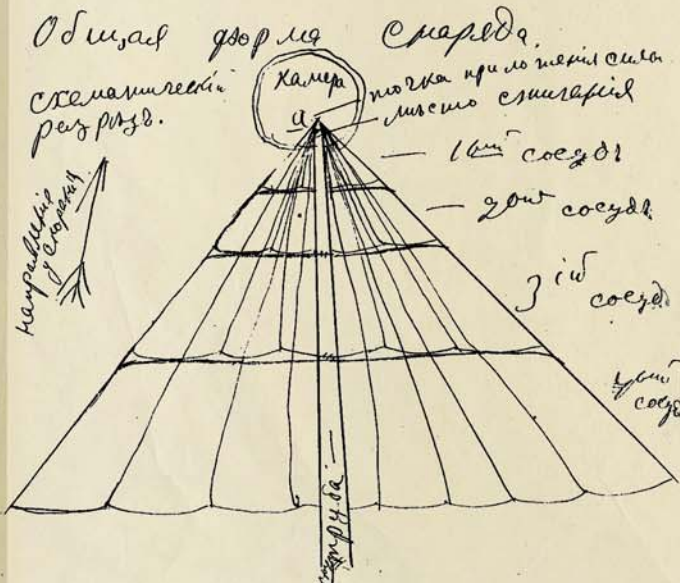 Общая форма снаряда.
схематический
разрѣзъ.
Камера
а
точка приложенія силы
мѣсто сжиганія
1ый сосудъ
2ой сосудъ
3ій сосудъ
4ый
сосудъ
направленіе
ускоренія
труба